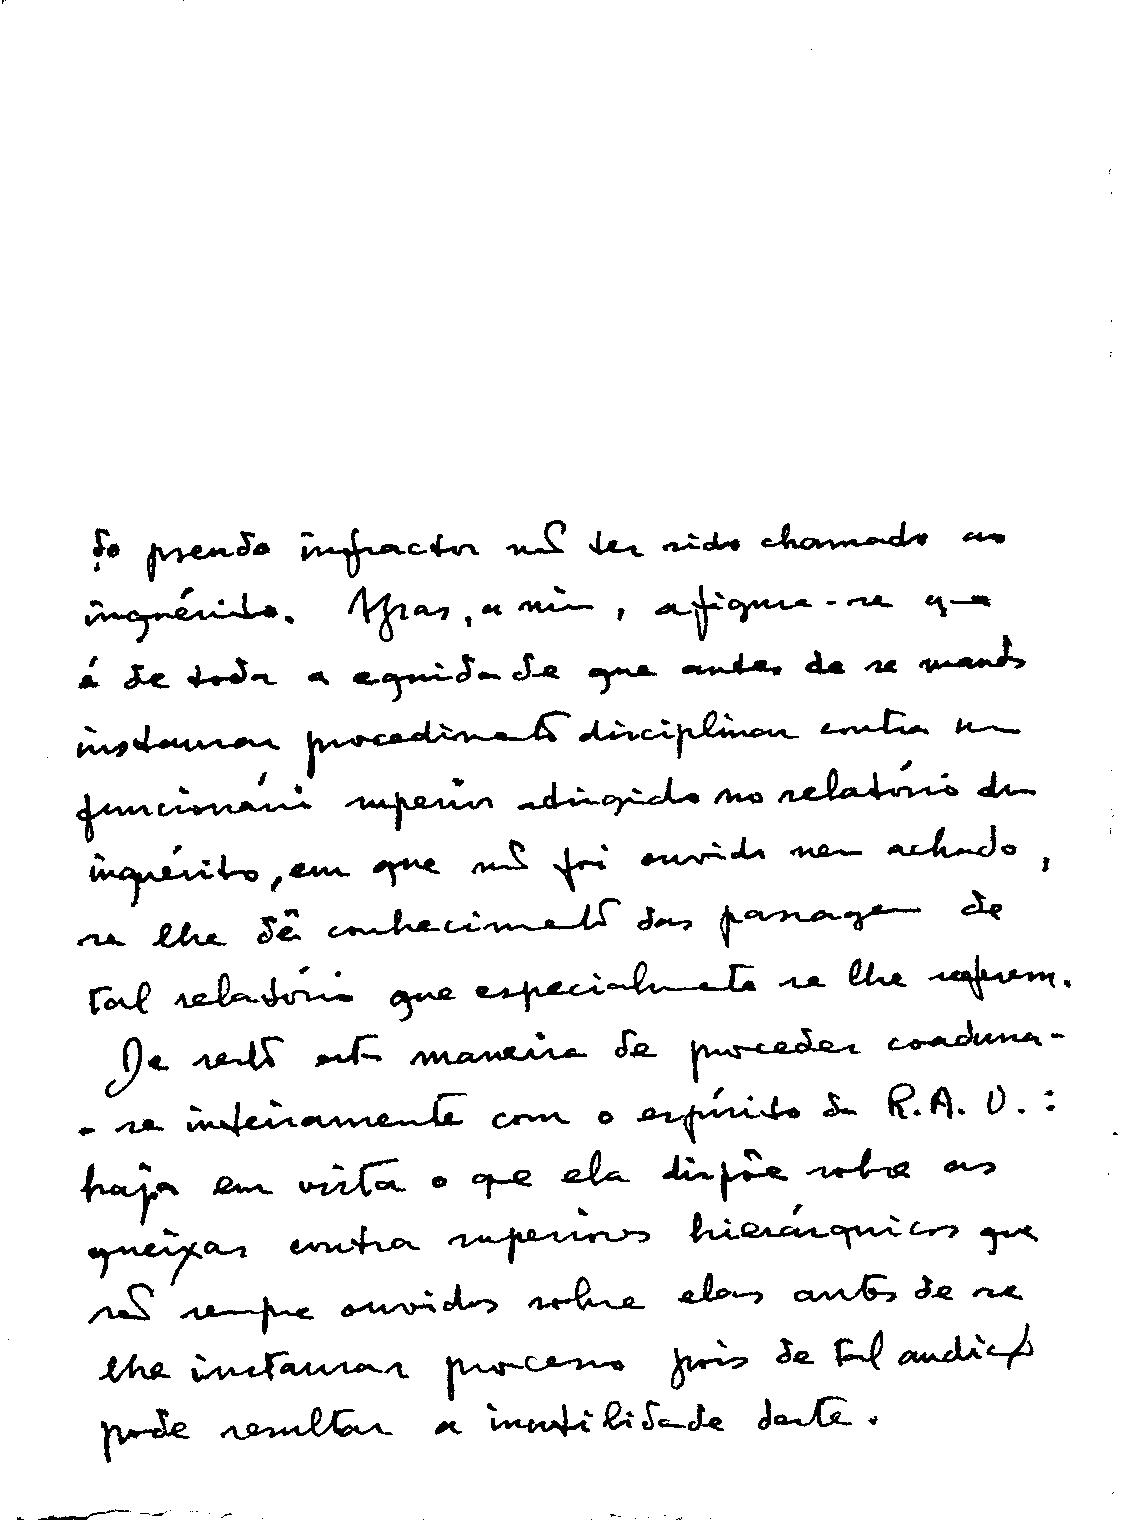 do pseudo infractor não ter sido chamado ao
inquérito. Mas, a mim, afigura-se que
é de toda a equidade que antes de se mandar
instaurar procedimento disciplinar contra um
funcionário superior atingido no relatório dum
inquérito, em que não foi ouvido nem achado,
se lhe dê conhecimento das passagens de
tal relatório que especialmente se lhe referem.
De resto esta maneira de proceder coaduna-
-se inteiramente com o espírito da R.A.U.:
haja em vista o que ela dispõe sobre as
queixas contra superiores hierárquicos que
são sempre ouvidos sobre elas antes de se
lhe instaurar processo pois de tal audição
pode resultar a inutilidade deste.